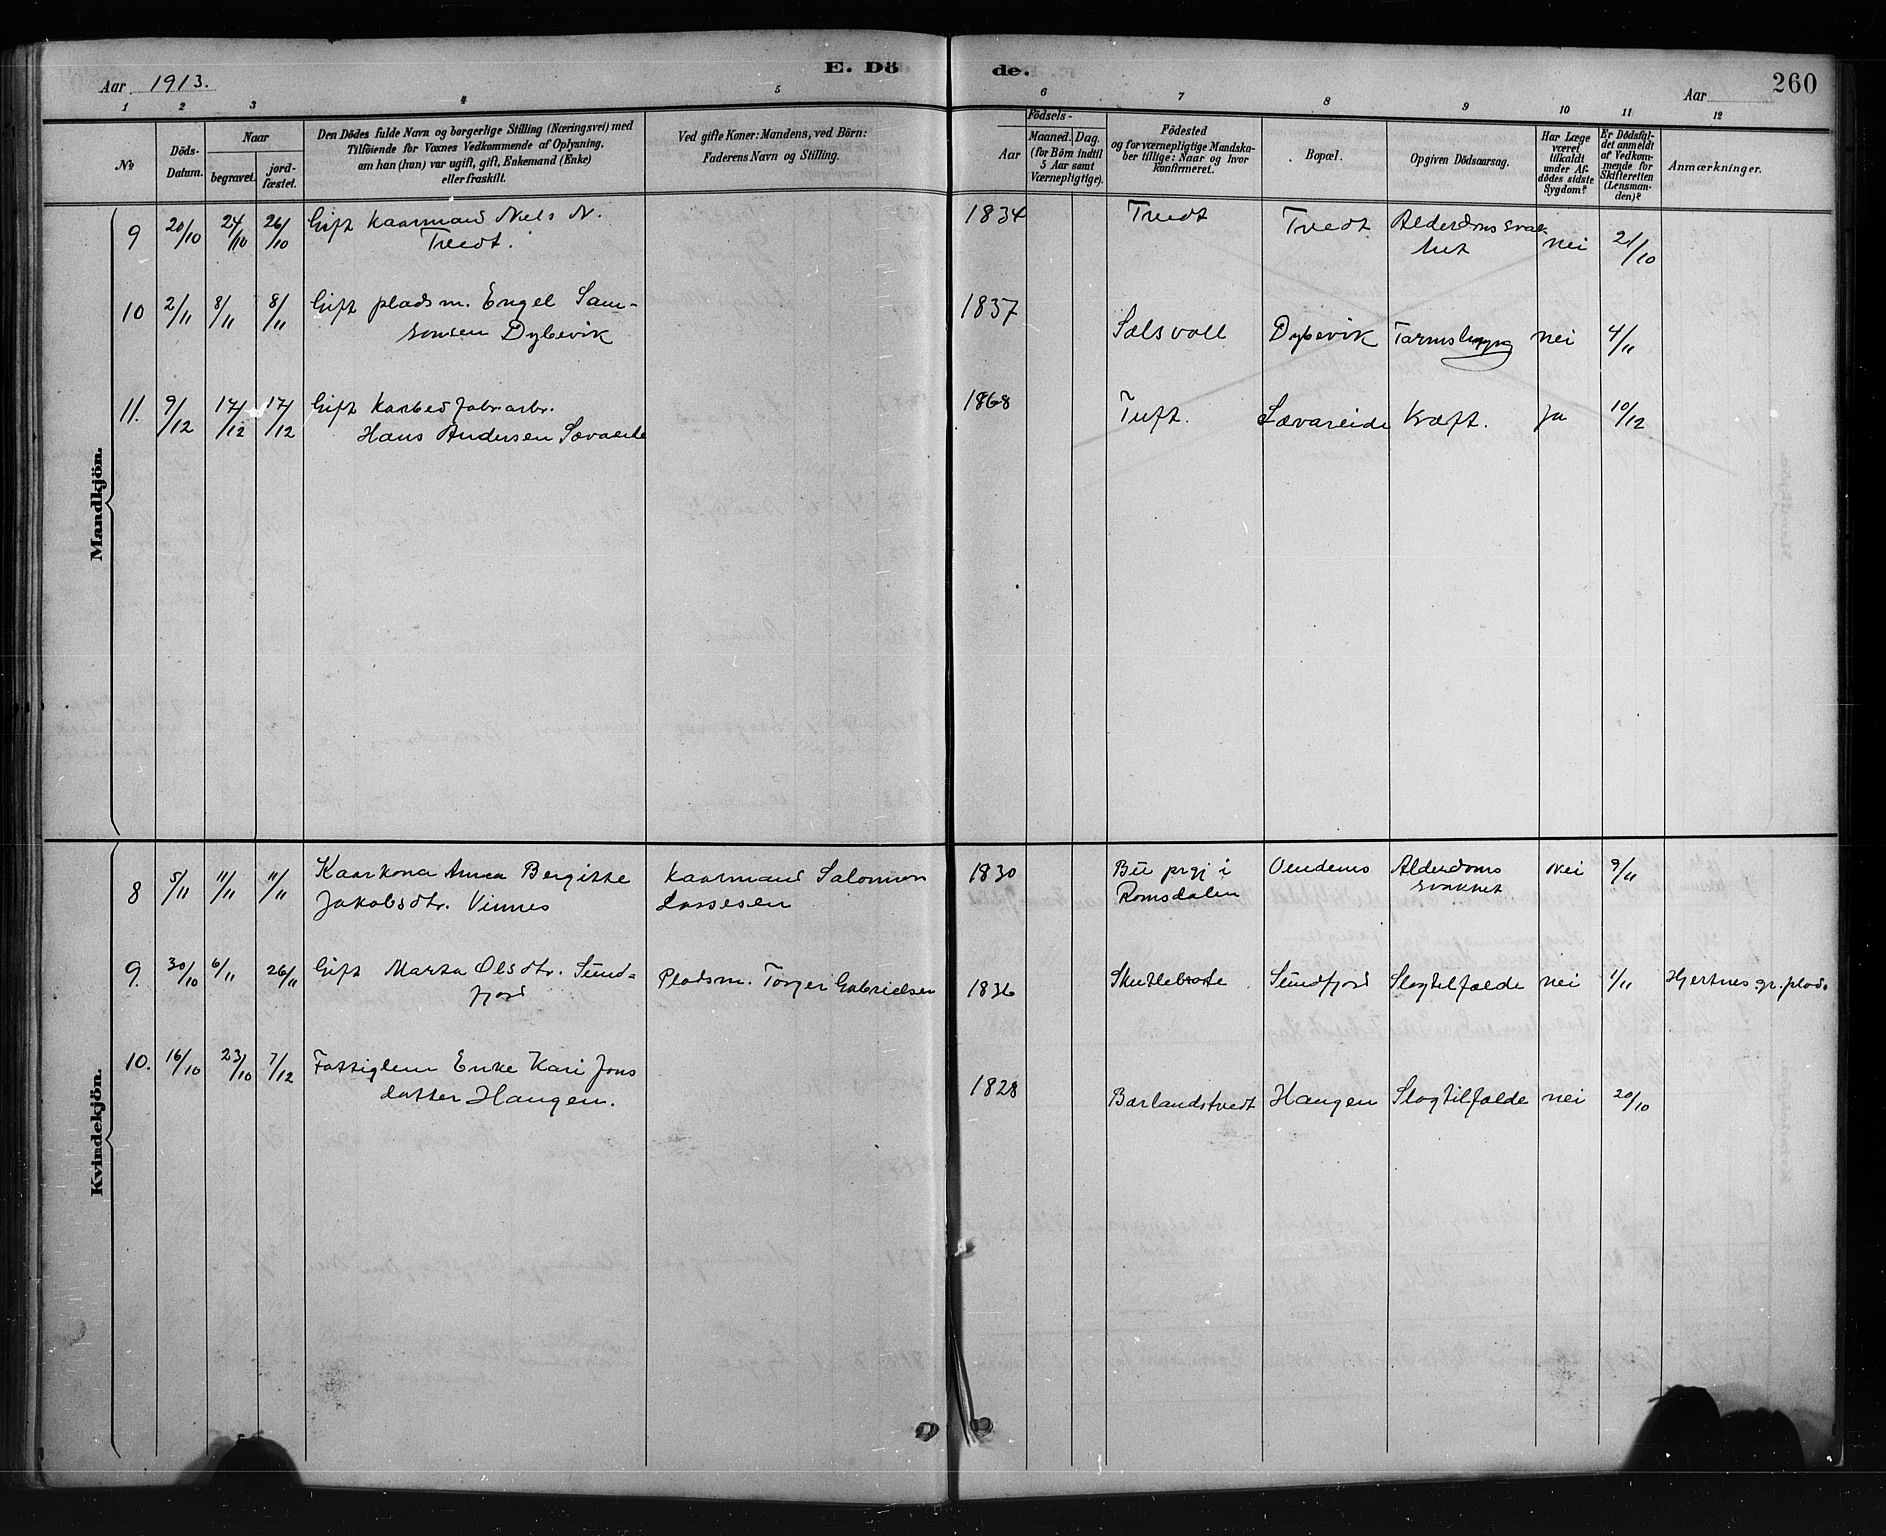 E. Dö de.
Aar 1913.
Aar
260
1 2 3 4 5 6 7 8 9 10 11 12
No
Döds-Datum.
Naar
begravet.
jord-fæstet.
Den Dödes fulde Navn og borgerlige Stilling (Næringsvei) med
Tilföiende for Voxnes Vedkommende af Oplysning,
om han (hun) var ugift, gift, Enkemand (Enke)
eller fraskilt.
Ved gifte Koner: Mandens, ved Börn:
Faderens Navn og Stilling.
Födsels-
Aar
Maaned. Dag.
(for Börn indtil
5 Aar samt
Værnepligtige).
Födested
og for værnepligtige Mandska-
ber tillige: Naar og hvor
konfirmeret.
Bopæl.
Opgiven Dödsaarsag.
Har Læge
været
tilkaldt
under Af-
dödes sidste
Sygdom?
Er Dödsfal-
det anmeldt
af Vedkom-
mende for
Skifteretten
(Lensman-
den)?
Anmærkninger.
Mandkjön.
9 20/10 24/10 26/10 Gift Kaarmand Niels N. 1834 Tvedt Tvedt Alderdoms svak- nei 21/10
Tvedt. het
10 2/11 8/11 8/11 Gift pladsm. Engel Sam- 1837
sonsen Dybevik Solsvoll Dybevik nei 4/11
11. 9/12 17/12 17/12 Gift 1868 Tuft. Sævareide Kræft. Ja 10/12
Hans Andersen Sævareide
Kvindekjön.
8 5/11 11/11 11/11 Kaarkona Anna Bergitte Kaarmand Salomon 1830 prgj i Alderdoms Nei 9/11
Jakobsdtr. Vinnes Lassesen Romsdalen svakhet
9. 30/10 6/11 26/11 Gift Marta Olsdtr. Sund- Pladsm. Torger Gabrielsen 1836 Skutlebrote Sundfjord Slagtilfælde nei 1/11 Hjertnes gr. plads
fjord
10. 16/10 23/10 7/12 Fattiglem Enke Kari Jons 1828
datter Haugen. Barlandstvedt Haugen Slagtilfælde nei 20/10